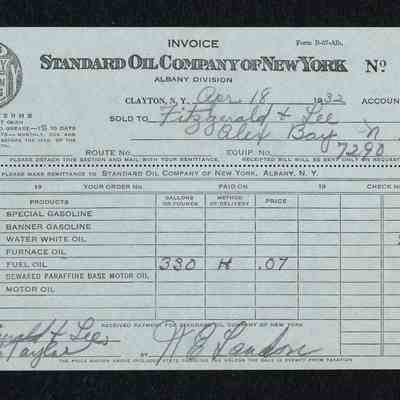 INVOICE
Form B-57-Alb.
STANDARD OIL COMPANY OF NEW YORK No
ALBANY DIVISION
CLAYTON, N.Y. Apr 18 1932 ACCOUN
SOLD TO Fitzgerald & Lee
Alex Bay N
TERMS
GREASE—1% 10 DAYS
ROUTE No. EQUIP. No. 7290
PLEASE DETACH THIS SECTION AND MAIL WITH YOUR REMITTANCE. RECEIPTED BILL WILL BE SENT ONLY ON REQUEST
PLEASE MAKE REMITTANCE TO STANDARD OIL COMPANY OF NEW YORK, ALBANY, N. Y.
19 YOUR ORDER No. PAID ON 19 CHECK NO
PRODUCTS GALLONS OR POUNDS METHOD OF DELIVERY PRICE
SPECIAL GASOLINE
BANNER GASOLINE
WATER WHITE OIL
FURNACE OIL
FUEL OIL 330 H .07
SEWARED PARAFFINE BASE MOTOR OIL
MOTOR OIL
RECEIVED PAYMENT FOR STANDARD OIL COMPANY OF NEW YORK
& Lee
Taylor
THE PRICE SHOWN ABOVE INCLUDES STATE GASOLINE TAX UNLESS THE SALE IS EXEMPT FROM TAXATION